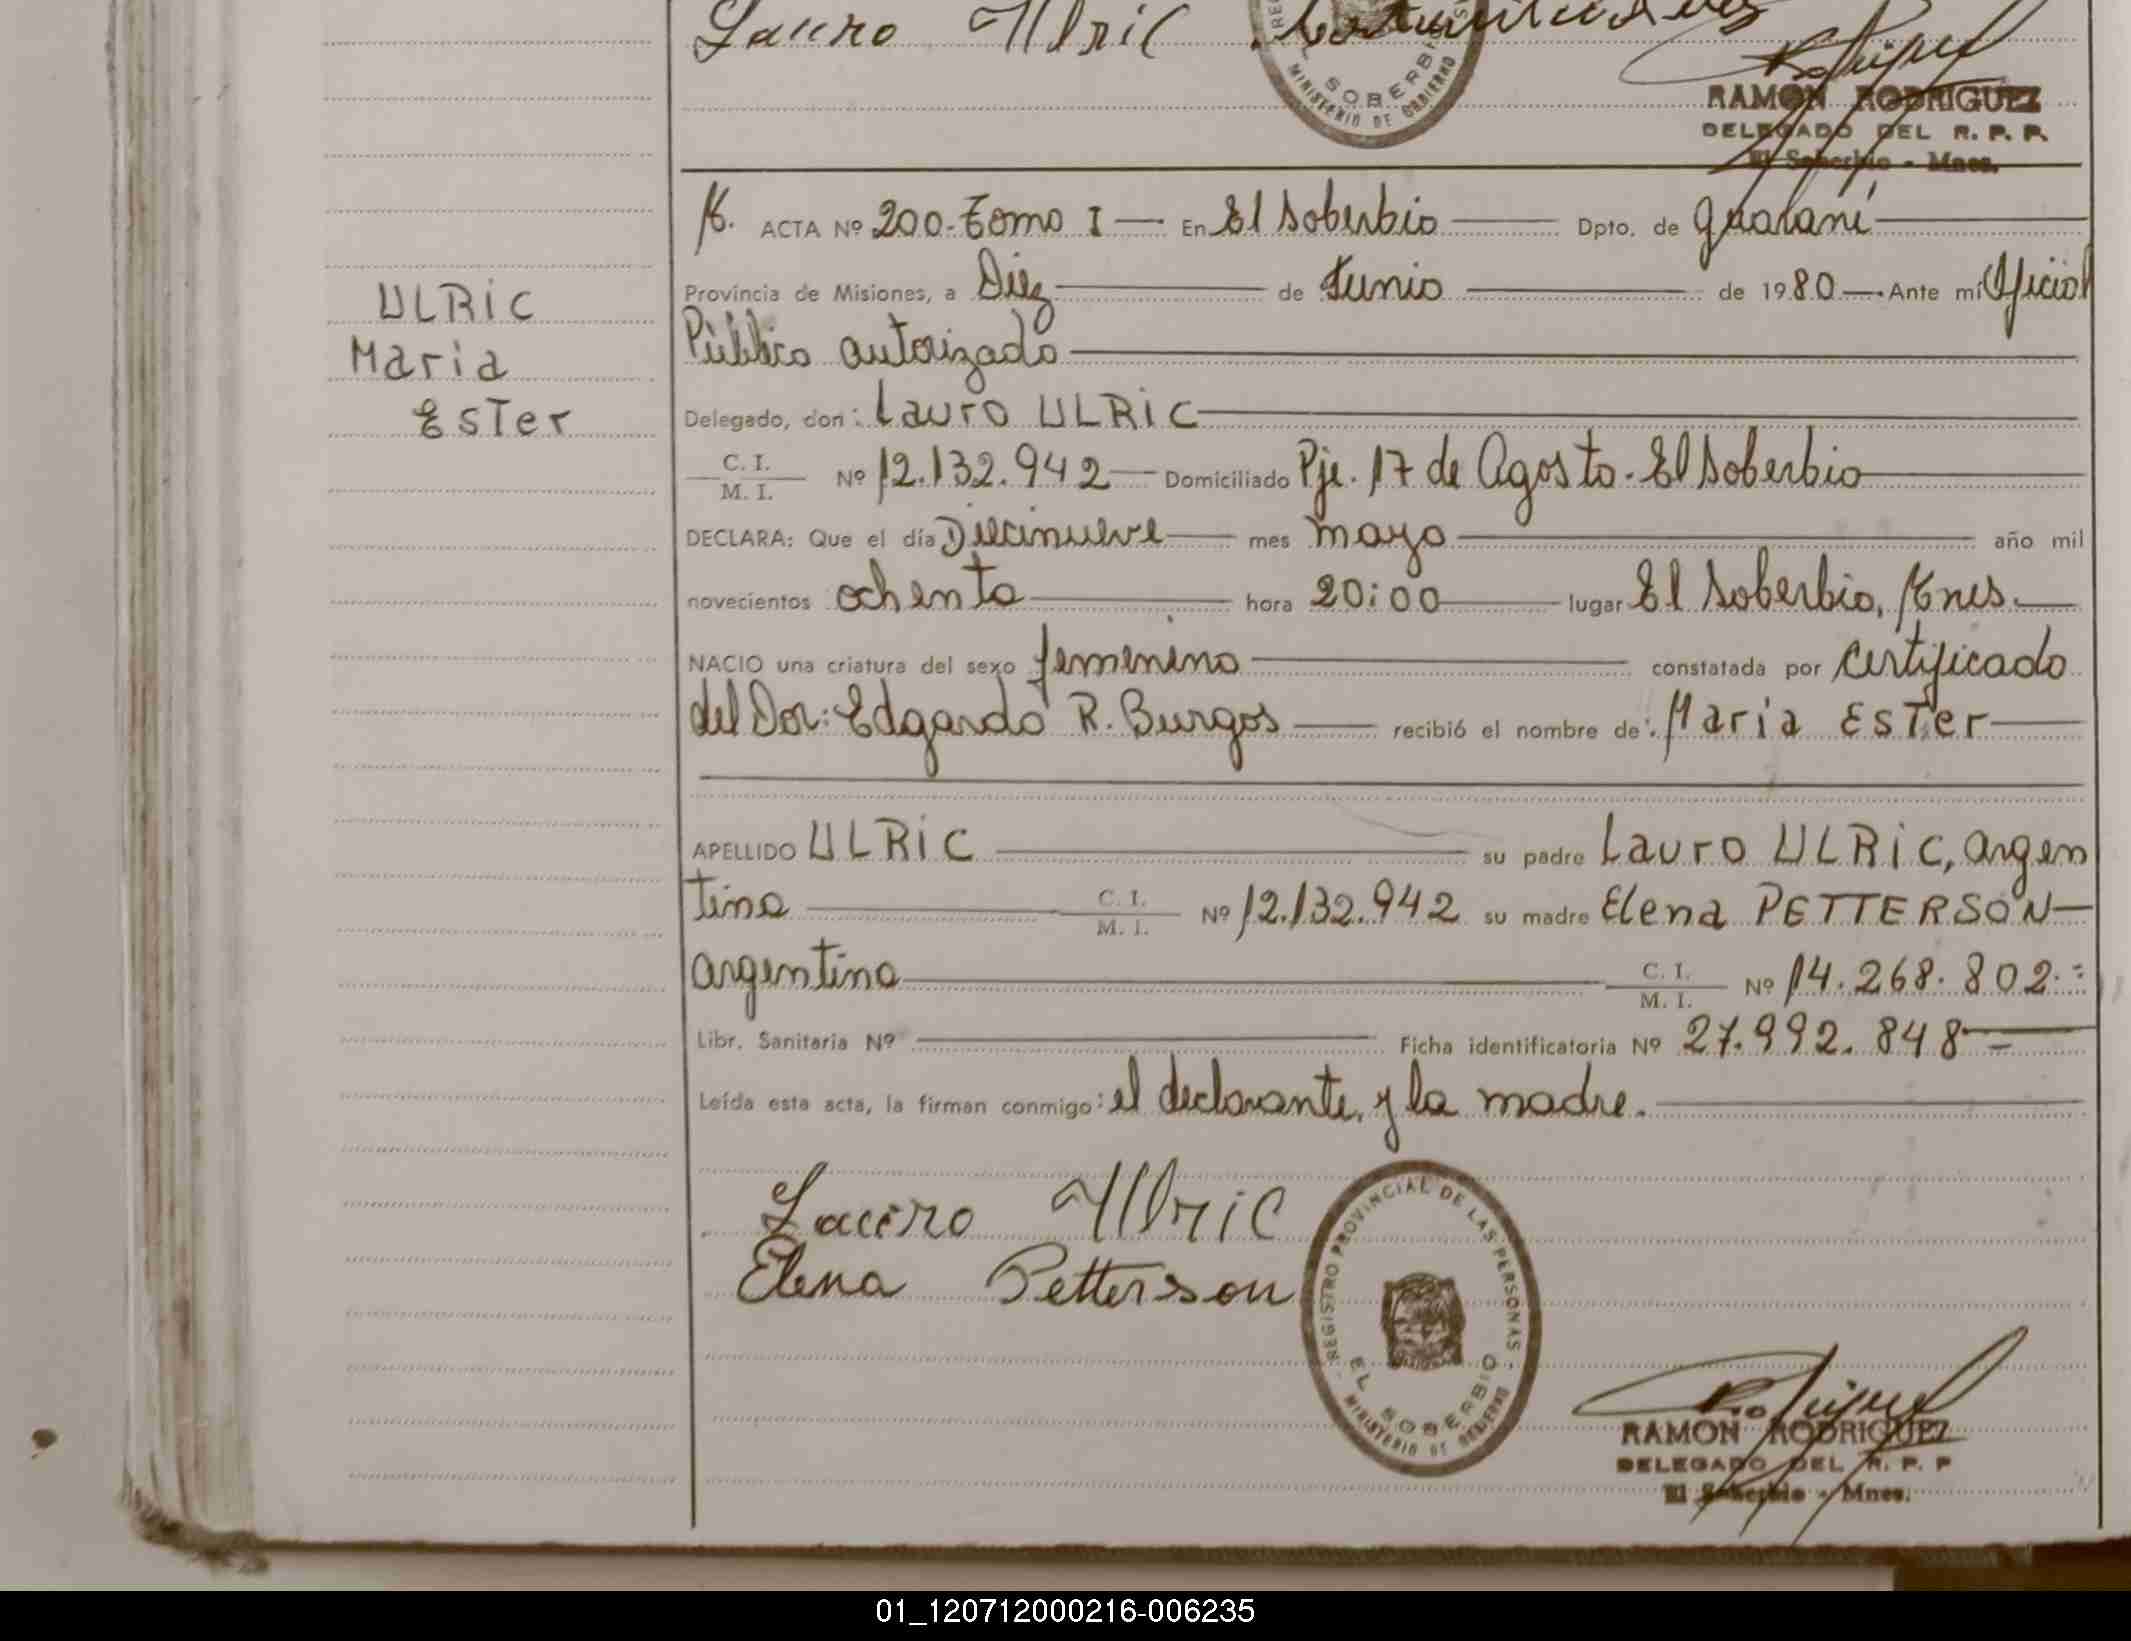 Lauro Ulric
SOBERBIO
MINISTERIO DE GOBIERNO
RAMON RODRIGUEZ
DELEGADO DEL R. P. P.
El Soberbio - Mnes.
ACTA Nº 200-Tomo I — En El Soberbio Dpto. de Guaraní
Provincia de Misiones, a Diez de Junio de 1980 — Ante mí Oficial
Público autorizado
Delegado, don: Lauro ULRIC
C. I.
M. I. Nº 12.132.942 Domiciliado Pje. 17 de Agosto. El Soberbio
DECLARA: Que el día Diecinueve mes mayo año mil
novecientos ochenta hora 20:00 lugar El Soberbio, Mnes.
NACIO una criatura del sexo femenino constatada por certificado
del Dor: Edgardo R. Burgos recibió el nombre de: Maria Ester
APELLIDO ULRIC su padre Lauro ULRIC, argen
tino C. I.
M. I. Nº 12.132.942 su madre Elena PETTERSON
argentina C. I.
M. I. Nº 14.268.802.=
Libr. Sanitaria Nº Ficha identificatoria Nº 27.992.848=
Leída esta acta, la firman conmigo: el declarante, y la madre.
Lauro Ulric
Elena Petterson
REGISTRO PROVINCIAL DE LAS PERSONAS
EL SOBERBIO
MINISTERIO DE GOBIERNO
RAMON RODRIGUEZ
DELEGADO DEL R. P. P
El Soberbio - Mnes.
ULRIC
Maria
Ester
01_120712000216-006235